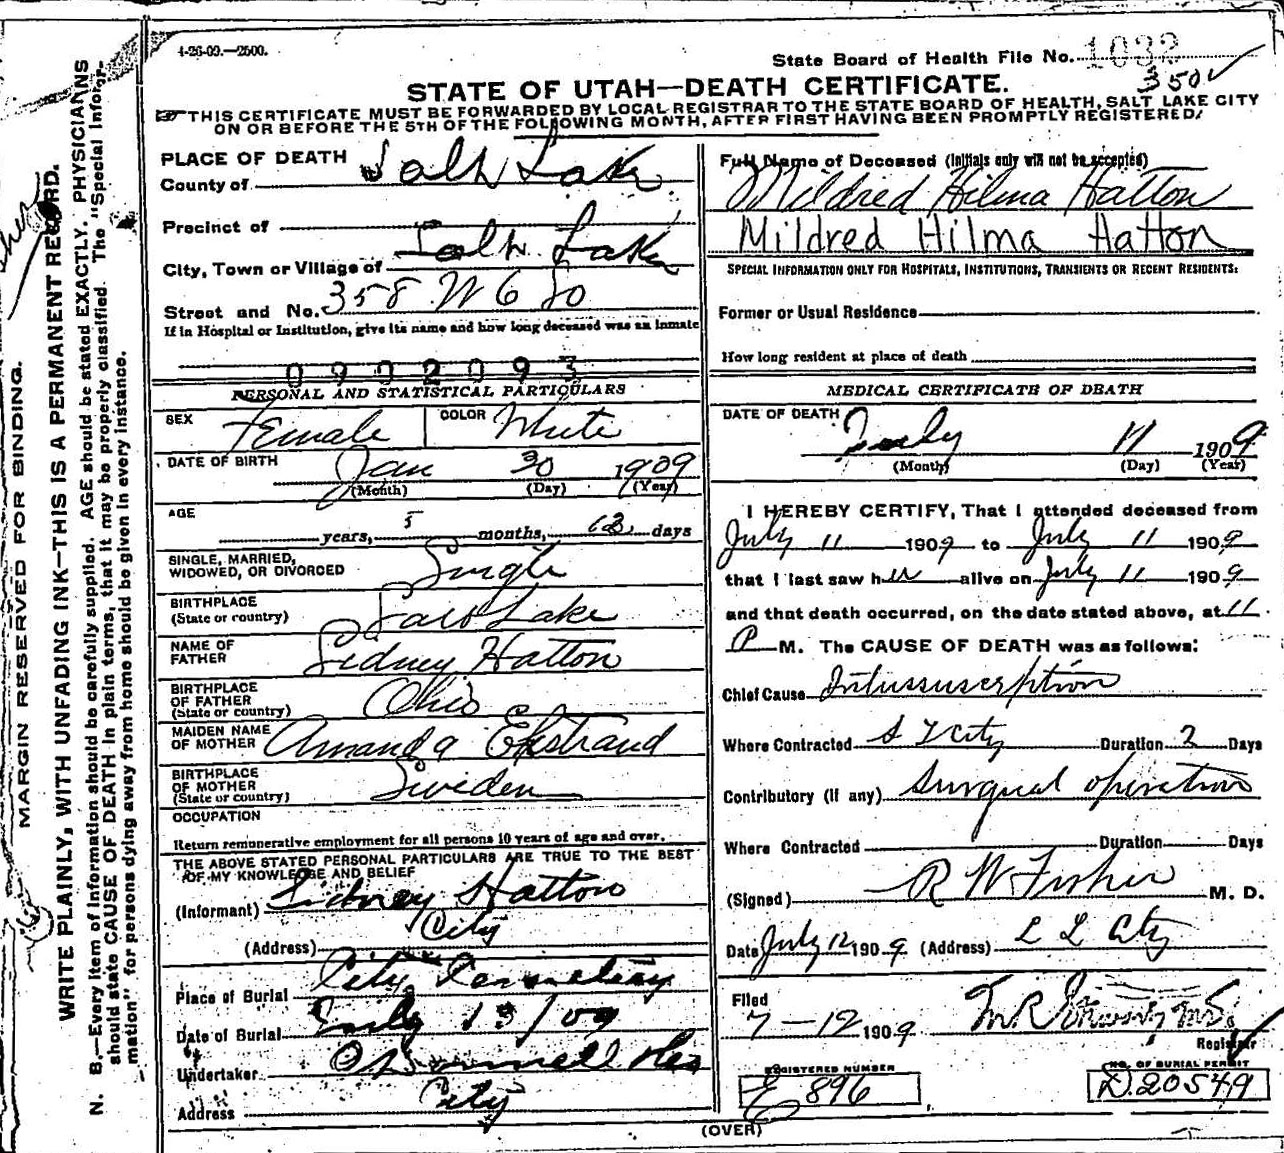 4-26-09.—2500.
State Board of Health File No. 1033
350
STATE OF UTAH—DEATH CERTIFICATE.
THIS CERTIFICATE MUST BE FORWARDED BY LOCAL REGISTRAR TO THE STATE BOARD OF HEALTH, SALT LAKE CITY
ON OR BEFORE THE 5TH OF THE FOLLOWING MONTH, AFTER FIRST HAVING BEEN PROMPTLY REGISTERED.
PLACE OF DEATH
County of Salt Lake
Precinct of
City, Town or Village of Salt Lake
Street and No. 358 W 6 So
If in Hospital or Institution, give its name and how long deceased was an inmate
0902093
PERSONAL AND STATISTICAL PARTICULARS
SEX Female COLOR White
DATE OF BIRTH Jan 30 1909
(Month) (Day) (Year)
AGE
years, 5 months, 12 days
SINGLE, MARRIED,
WIDOWED, OR DIVORCED Single
BIRTHPLACE
(State or country) Salt Lake
NAME OF
FATHER Sidney Hatton
BIRTHPLACE
OF FATHER
(State or country) Ohio
MAIDEN NAME
OF MOTHER Amanda Ekstrand
BIRTHPLACE
OF MOTHER
(State or country) Sweden
OCCUPATION
Return remunerative employment for all persons 10 years of age and over.
THE ABOVE STATED PERSONAL PARTICULARS ARE TRUE TO THE BEST
OF MY KNOWLEDGE AND BELIEF
(Informant) Sidney Hatton
(Address) City
Place of Burial City Cemetery
Date of Burial July 13/09
Undertaker O'Donnell
Address City
Full Name of Deceased (Initials only will not be accepted)
Mildred Hilma Hatton
Mildred Hilma Hatton
SPECIAL INFORMATION ONLY FOR HOSPITALS, INSTITUTIONS, TRANSIENTS OR RECENT RESIDENTS:
Former or Usual Residence
How long resident at place of death
MEDICAL CERTIFICATE OF DEATH
DATE OF DEATH July 11 1909
(Month) (Day) (Year)
I HEREBY CERTIFY, That I attended deceased from
July 11 1909 to July 11 1909
that I last saw her alive on July 11 1909
and that death occurred, on the date stated above, at 11
P M. The CAUSE OF DEATH was as follows:
Chief Cause Intussusception
Where Contracted S L City Duration 2 Days
Contributory (if any) Surgical operation
Where Contracted Duration Days
(Signed) R W Fisher M. D.
Date July 12 1909 (Address) S L City
Filed
7-12 1909
Registrar
REGISTERED NUMBER
E 896
NO. OF BURIAL PERMIT
D.20549
(OVER)
MARGIN RESERVED FOR BINDING.
WRITE PLAINLY, WITH UNFADING INK—THIS IS A PERMANENT RECORD.
N. B.—Every item of Information should be carefully supplied. AGE should be stated EXACTLY. PHYSICIANS
should state CAUSE OF DEATH in plain terms, that it may be properly classified. The "Special Infor-
mation" for persons dying away from home should be given in every instance.